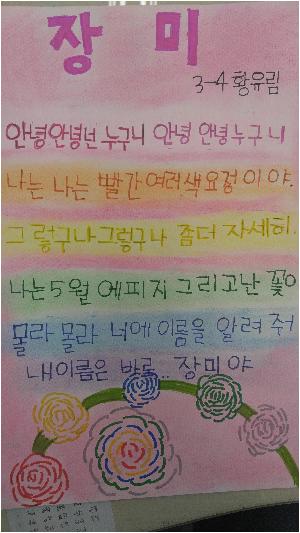 장 미
3-4 황유림
안녕안녕넌 누구니 안녕 안녕누구니
나는 나는 빨간여러색요정이야.
그렇구나그렇구나 좀더 자세히.
나는5월 에피지 그리고난 꽃
몰라 몰라 너에 이름을 알려 주
내이름은 바로.. 장미야